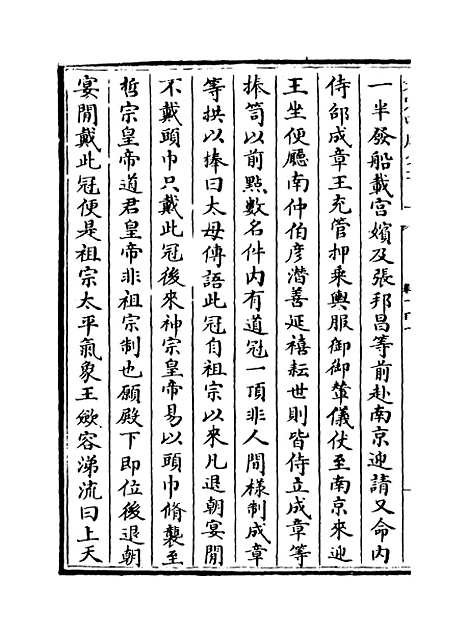 一半發船載宮嬪及張邦昌等前赴南京迎請又命内
侍邵成章王充管押乘輿服御御輦儀仗至南京來迎
王坐便廳南仲伯彦潛善延禧耘世則皆侍立成章等
捧笥以前㸃數名件内有道冠一頂非人間様制成章
等拱以捧曰太母傳語此冠自祖宗以來凡退朝宴閒
不戴頭巾只戴此冠後來神宗皇帝易以頭巾循襲至
哲宗皇帝道君皇帝非祖宗制也願殿下即位後退朝
宴閒戴此冠便是祖宗太平氣象王歛容涕流曰上天